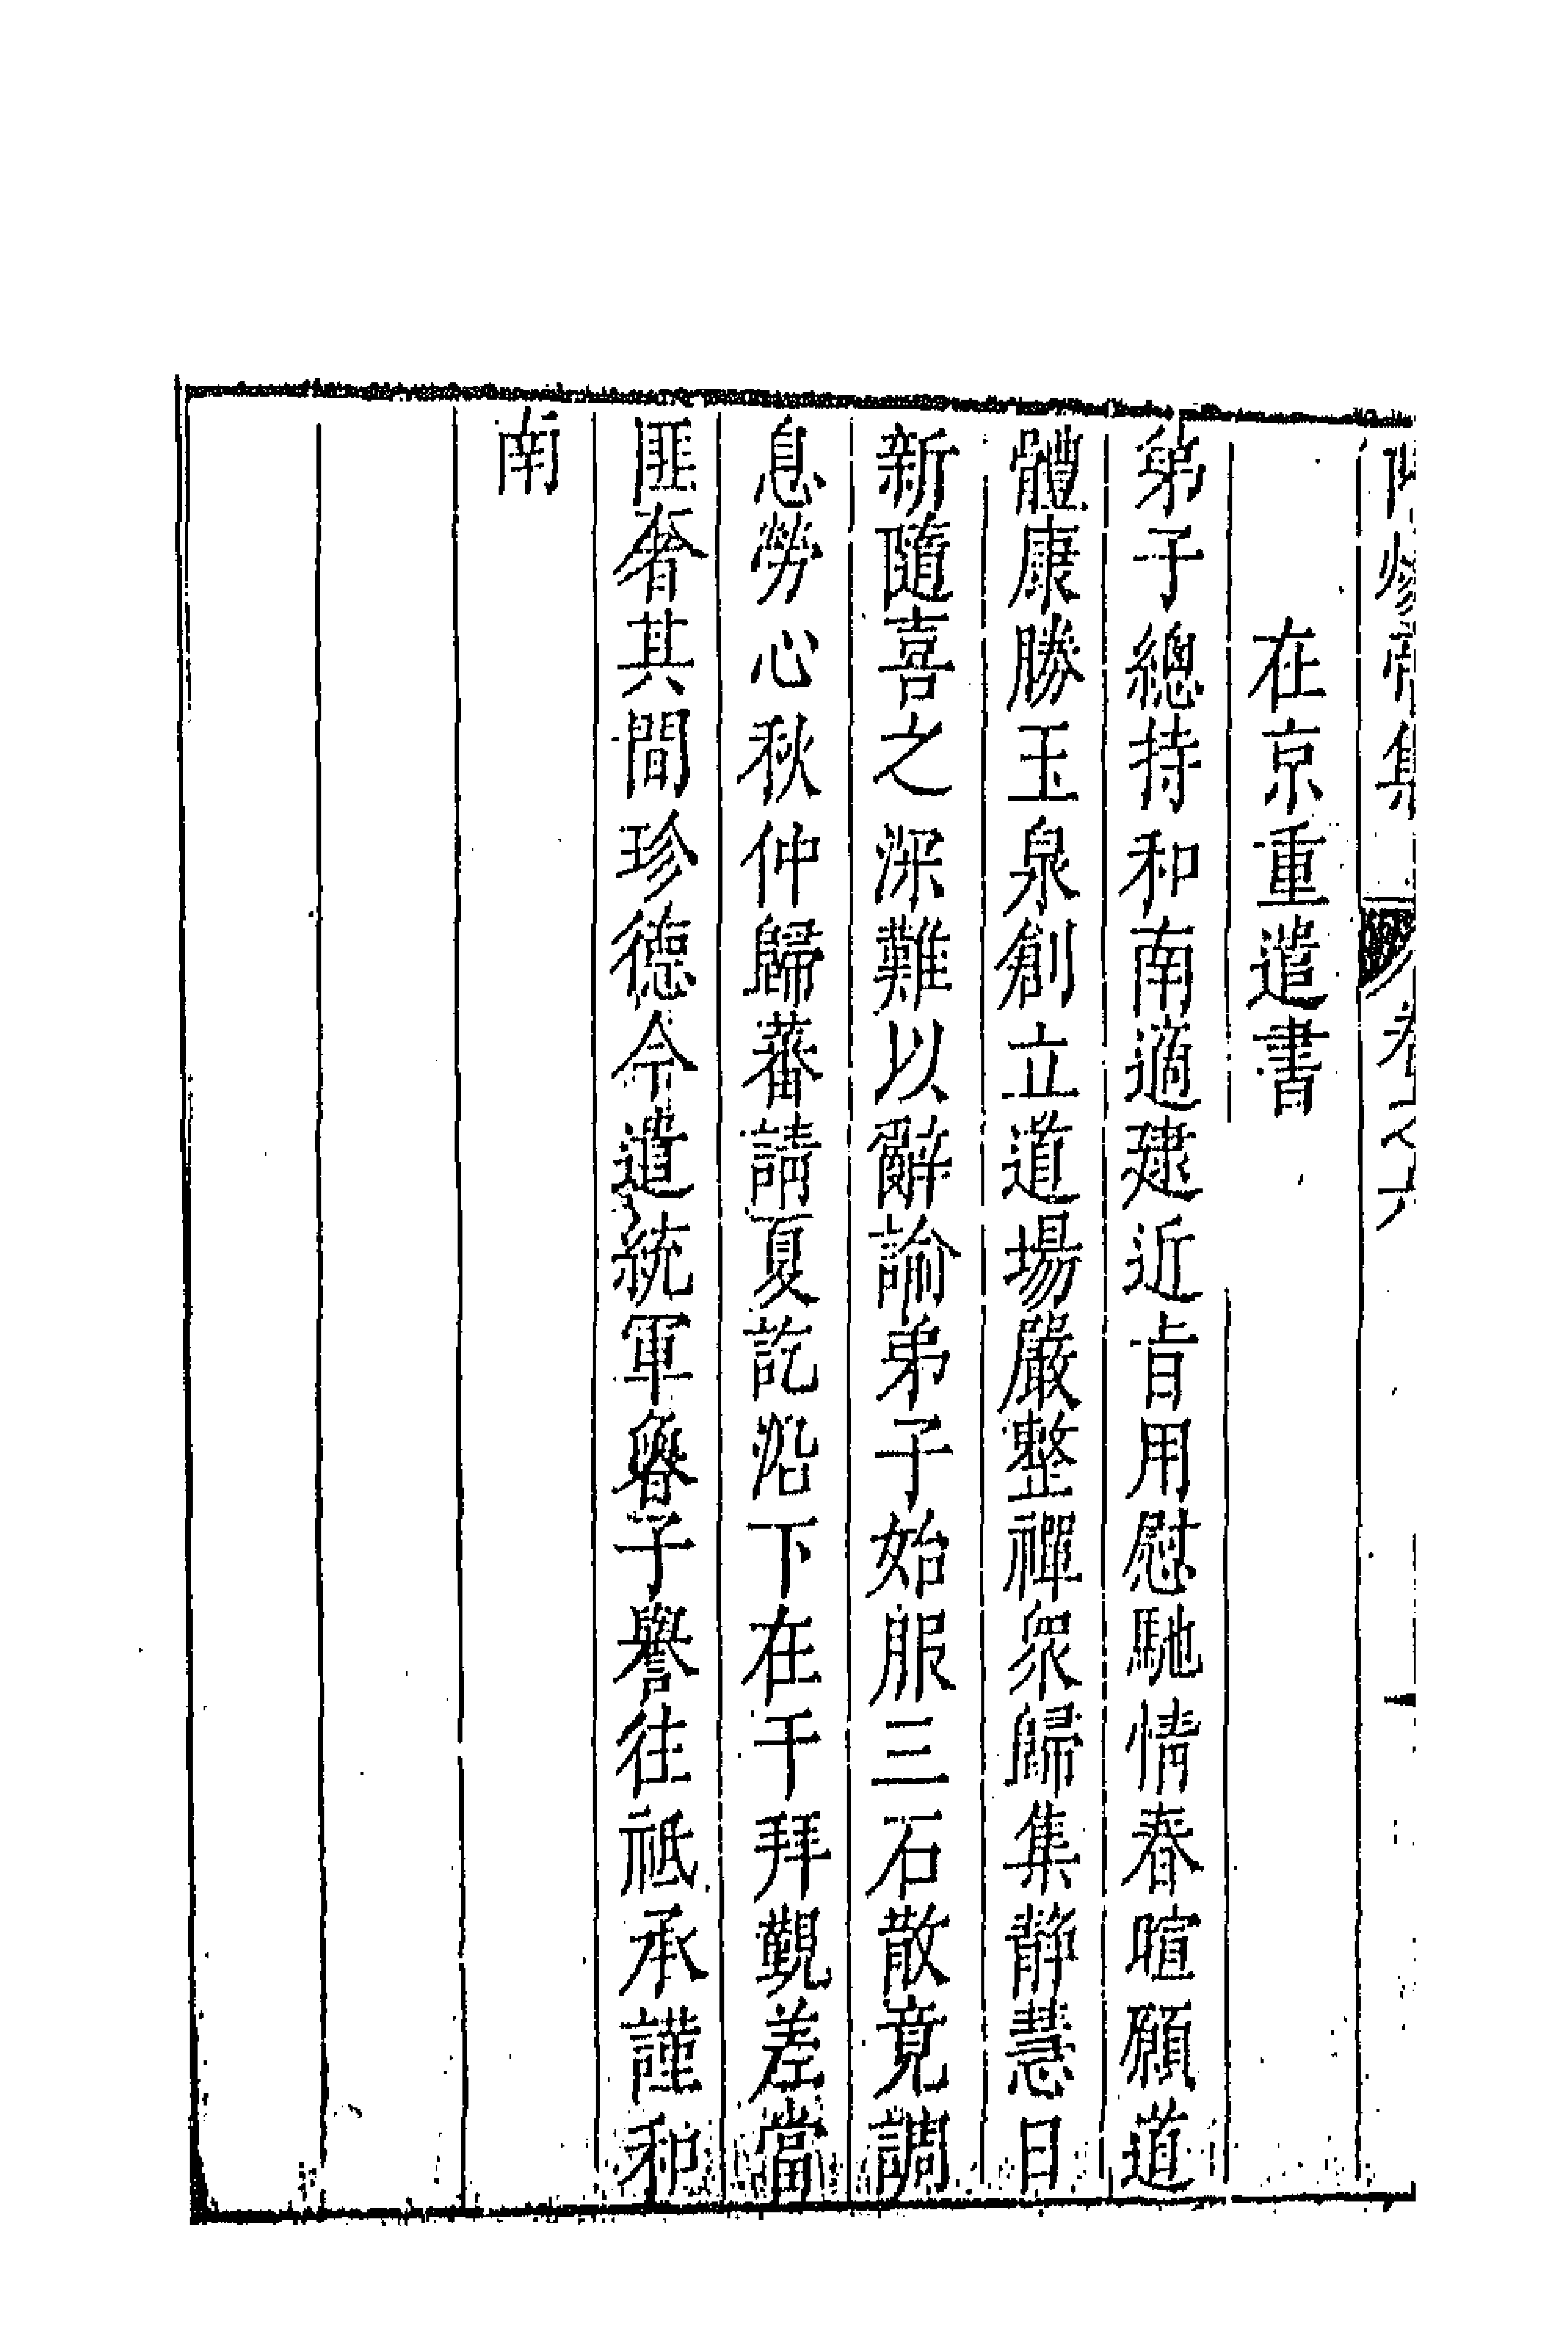 隋煬帝集 卷之六
在京重遣書
弟子總持和南適建近㫖用慰馳情春暄願道
體康勝玉泉創立道場嚴整禪眾歸集靜慧日
新隨喜之深難以辭諭弟子始服三石散竟調
息勞心秋仲歸蕃請夏訖沿下在于拜覲差當
匪奢其間珍德今遣統軍魯子譽往祗承謹和
南